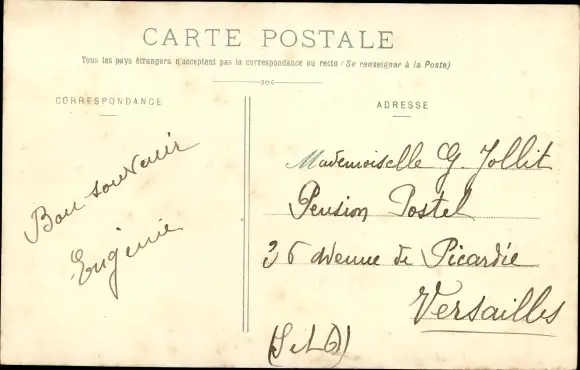 CARTE POSTALE
Tous les pays étrangers n'acceptent pas la correspondance au recto (Se renseigner à la Poste)
CORRESPONDANCE
ADRESSE
Bon souvenir
Eugénie
Mademoiselle G. Jollit
Pension Postel
36 Avenue de Picardie
Versailles
(S et O)